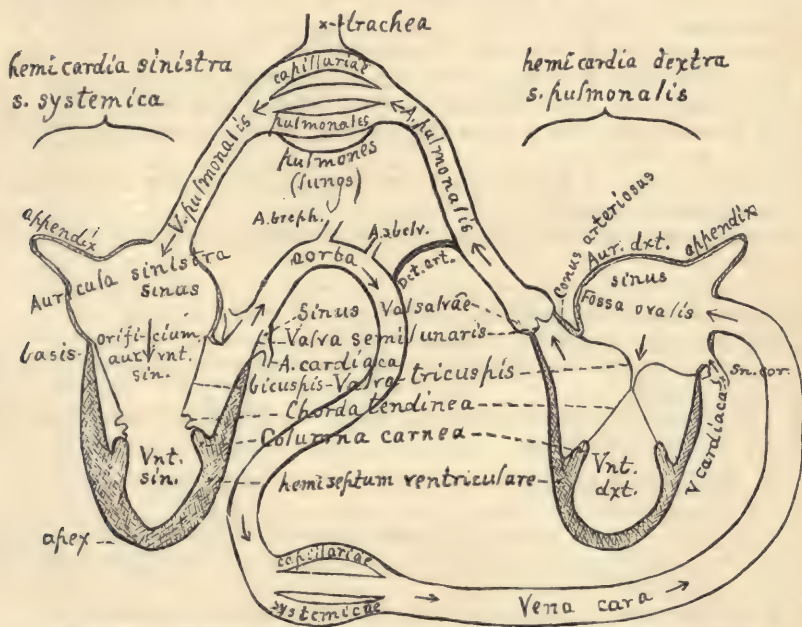 x-trachea
hemicardia sinistra
s. systemica
hemicardia dextra
s. pulmonalis
capillariae
pulmonales
pulmones
(lungs)
V. pulmonalis
A. pulmonalis
A. breph.
A. sbclv.
aorta
Dct. art.
conus arteriosus
appendix
Auricula sinistra
sinus
Aur. dxt.
appendix
sinus
Fossa ovalis
Sinus Valsalvae
Valva semilunaris
A. cardiaca
bicuspis-Valva-tricuspis
Chorda tendinea
Columna carnea
hemiseptum ventriculare
basis
orificium
aur. vnt.
sin.
Vnt.
sin.
apex
Sn. cor.
V cardiaca
Vnt.
dxt.
capillariae
systemicae
Vena cava